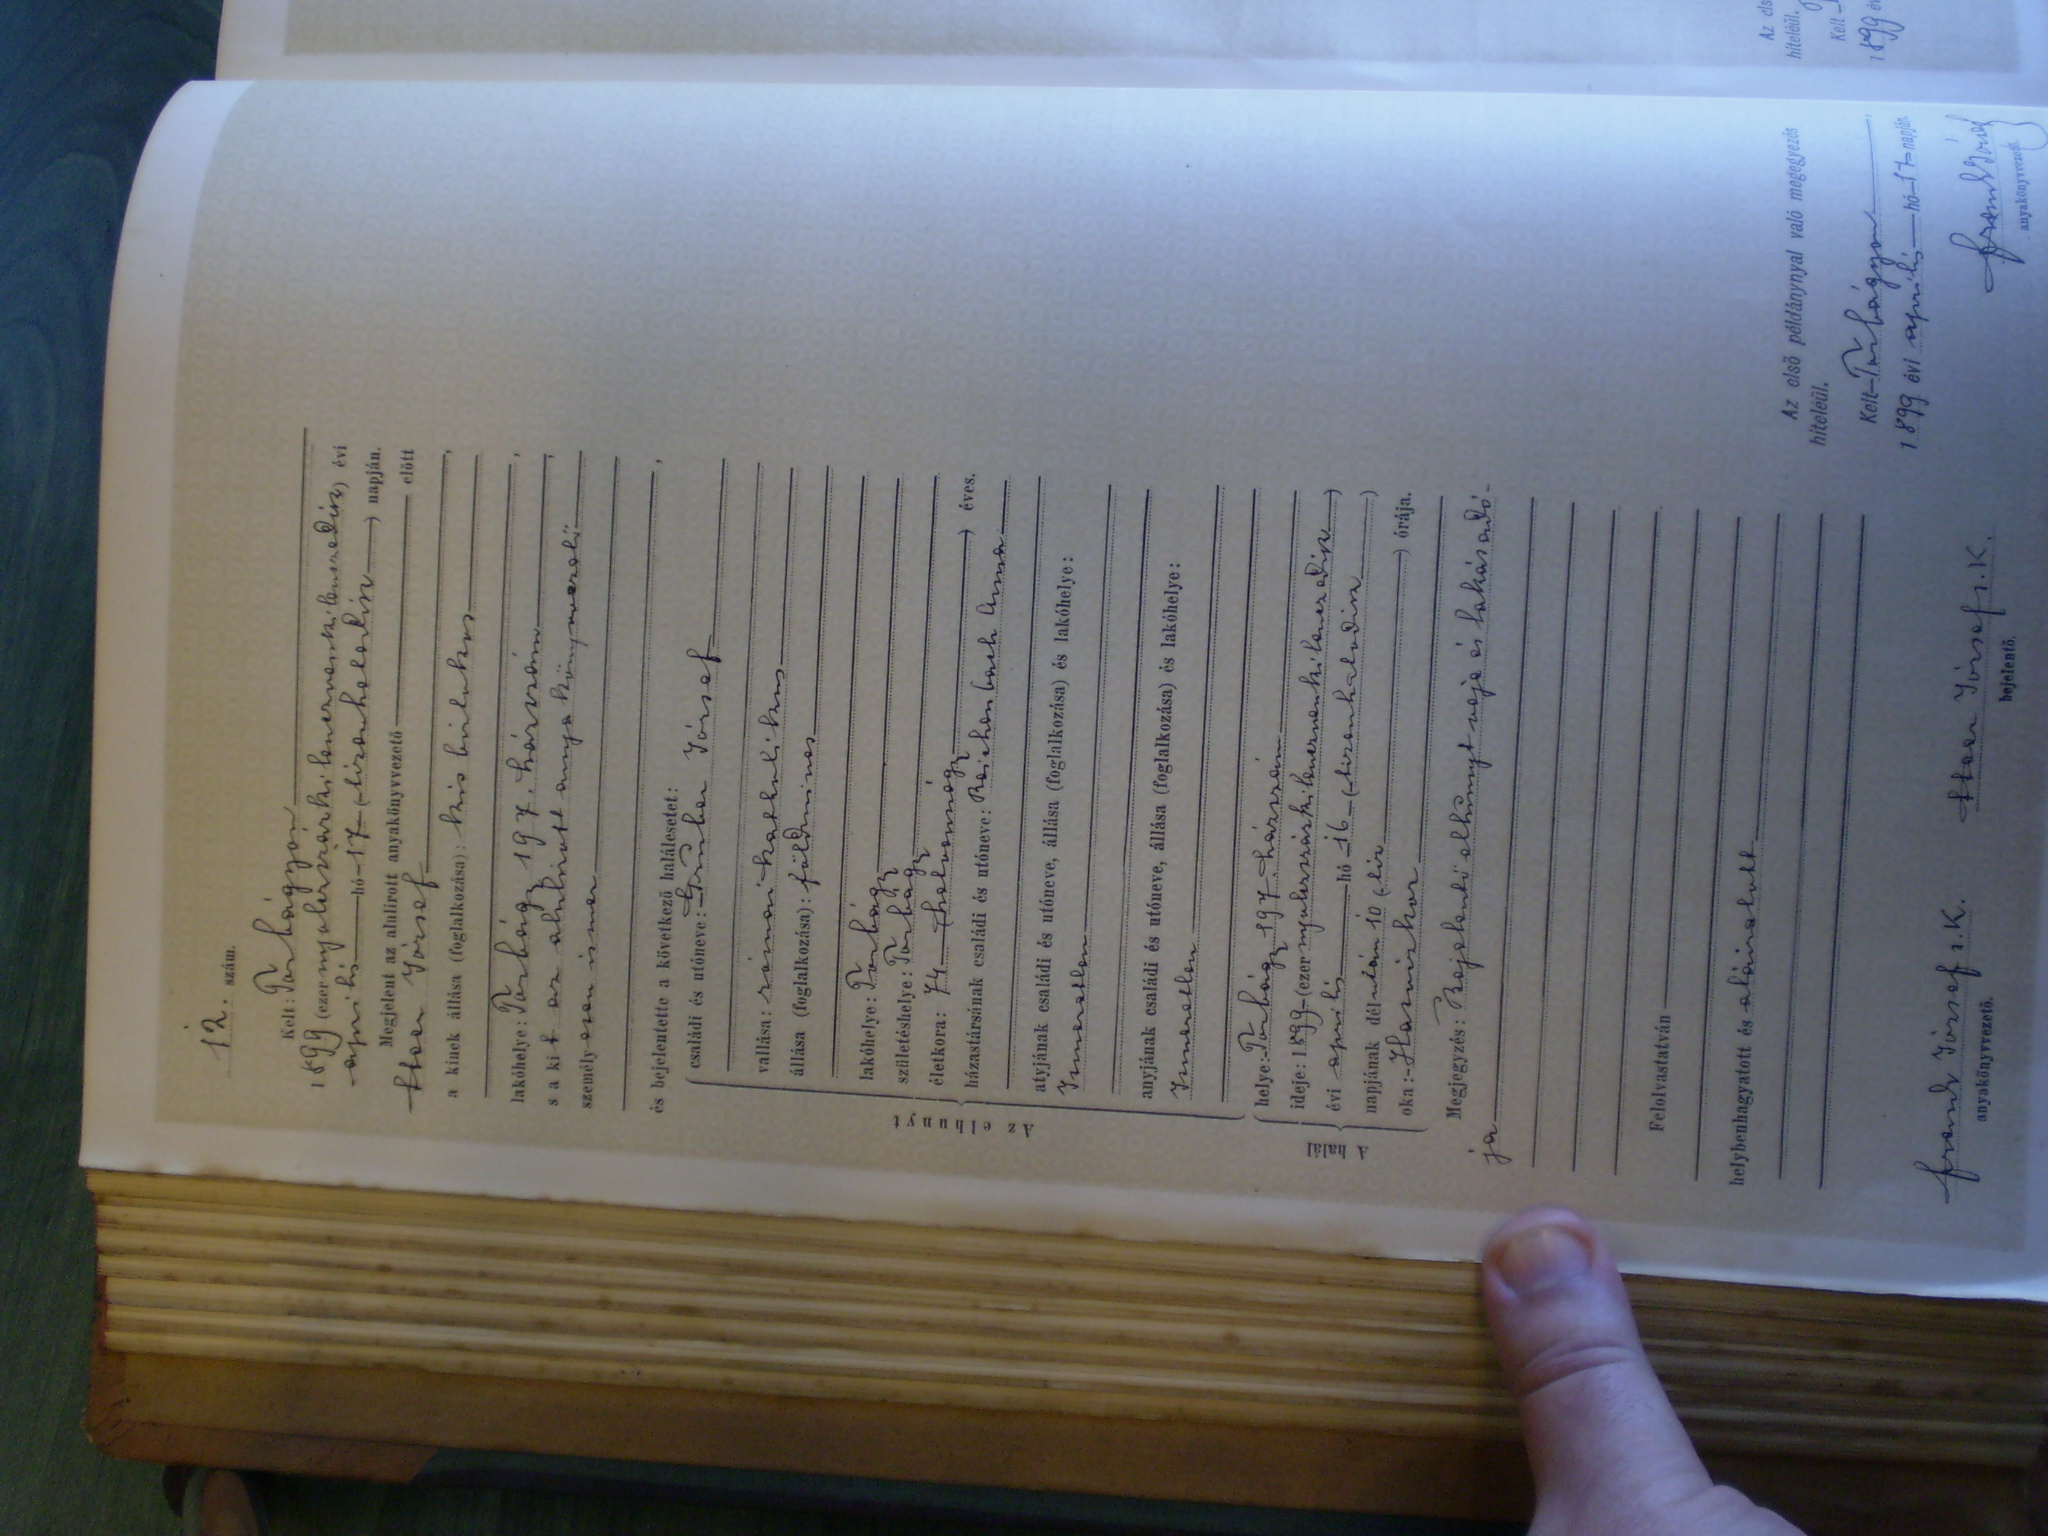 12. szám.
Kelt: Torbágyon
1899 (ezernyolcszázkilencvenkilencedik) évi
április hó 17 (tizenhetedik) napján.
Megjelent az alulirott anyakönyvvezető előtt
József
a kinek állása (foglalkozása): kis birtokos
lakóhelye: Torbágy 197. házszám
s a ki t az alulirott anyakönyvvezető
személyesen ismer
és bejelentette a következő halálesetet:
Az elhunyt
családi és utóneve: Gruber József
vallása: római katholikus
állása (foglalkozása): földmives
lakóhelye: Torbágy
születéshelye: Torbágy
életkora: 74 (hetvennégy) éves.
házastársának családi és utóneve: Reichenbach Anna
atyjának családi és utóneve, állása (foglalkozása) és lakóhelye:
Ismeretlen
anyjának családi és utóneve, állása (foglalkozása) és lakóhelye:
Ismeretlen
A halál
helye: Torbágy 197. házszám
ideje: 1899 (ezernyolcszázkilencvenkilencedik)
évi április hó 16 (tizenhatodik)
napjának délután 10 (tíz) órája.
oka:
Megjegyzés: Bejelentő elhunyt veje és lakásadó-
ja
Felolvastatván
helybenhagyatott és aláiratott
József s. K.
anyakönyvvezető.
József s. K.
bejelentő.
Az első példánynyal való megegyezés
hiteléül.
Kelt Torbágyon
1899 évi április hó 17 napján.
József
anyakönyvvezető.
Az els
hiteléül.
Kelt
1899 év